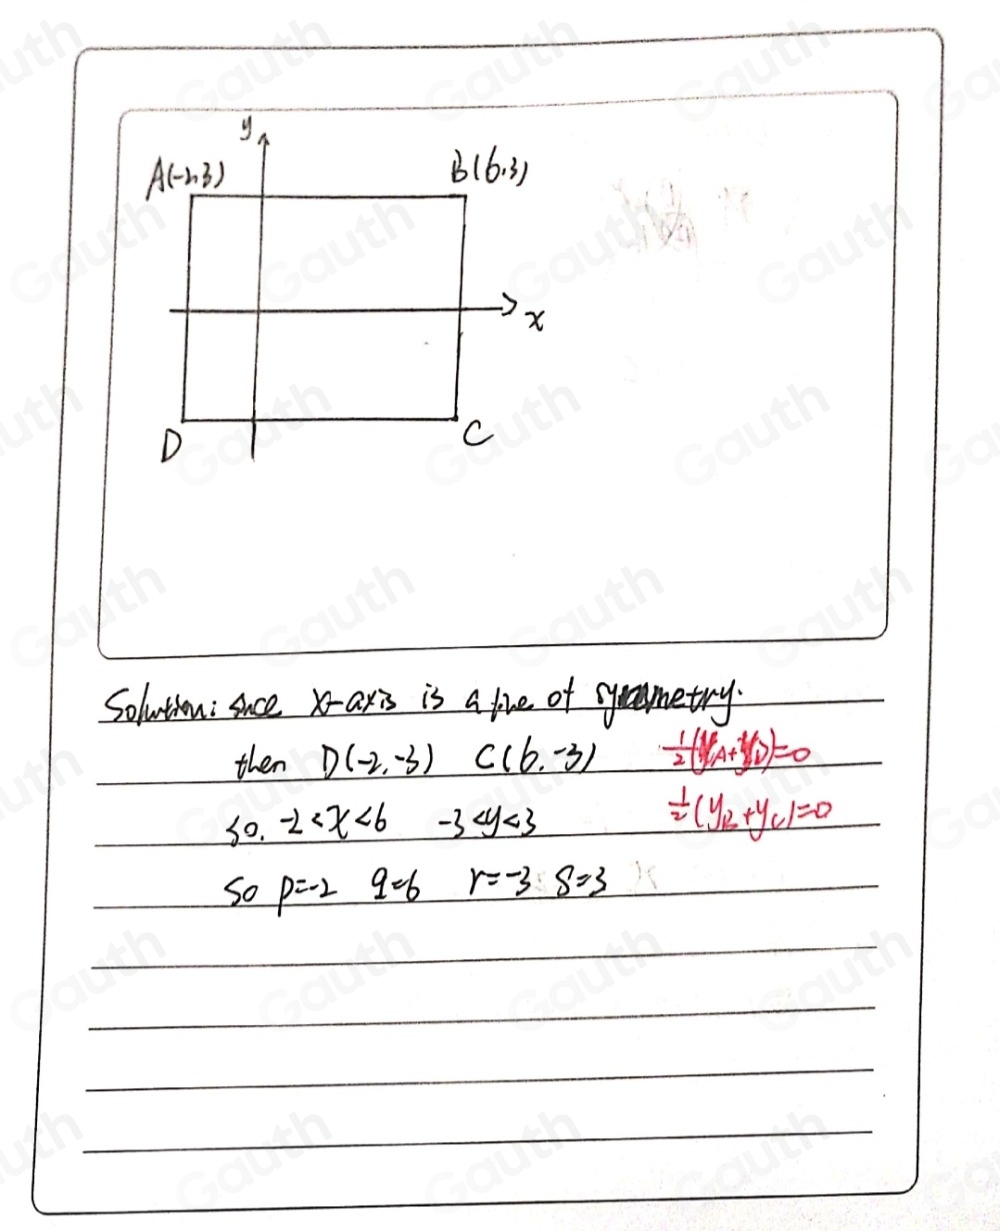 y
A(-2,3)
B(6,3)
x
D
C
Solution: since x-axis is a line of symmetry.
then D(-2,-3) C(6,-3) 1/2(yA+yD)=0
so, -2<x<6 -3<y<3 1/2(yB+yC)=0
so p=-2 q=6 r=-3 s=3
Gauth